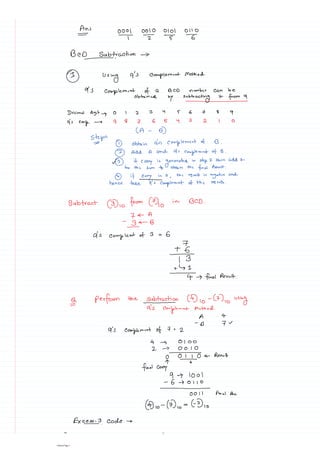 Ans 0001 0010 0101 0110
1 2 5 6
BCD Subtraction →
① Using 9's Complement Method
9's Complement of a BCD number can be
obtained by subtracting it from 9
Decimal digit → 0 1 2 3 4 5 6 7 8 9
9's comp. → 9 8 7 6 5 4 3 2 1 0
(A - B)
Steps
① obtain 9's complement of B.
② add A and 9's complement of B.
③ if carry is generated in step 2 then add it
to the sum to obtain the final Result
④ if carry is 0, the result is negative and
hence take 9's complement of the result.
Subtract (3)10 from (7)10 in BCD
7 ← A
- 3 ← B
9's compliment of 3 = 6
7
+ 6
1 3
+ → 1
4 → final Result
Q Perform the subtraction (4)10 - (7)10 using
9's compliment method
A 4
- B 7
9's Compliment of 7 = 2
4 → 0100
2 → 0010
0 0110 ← Result
final Carry
9 → 1001
- 6 → 0110
0011 Final Ans
(4)10 - (7)10 = (-3)10
Excess-3 Code →